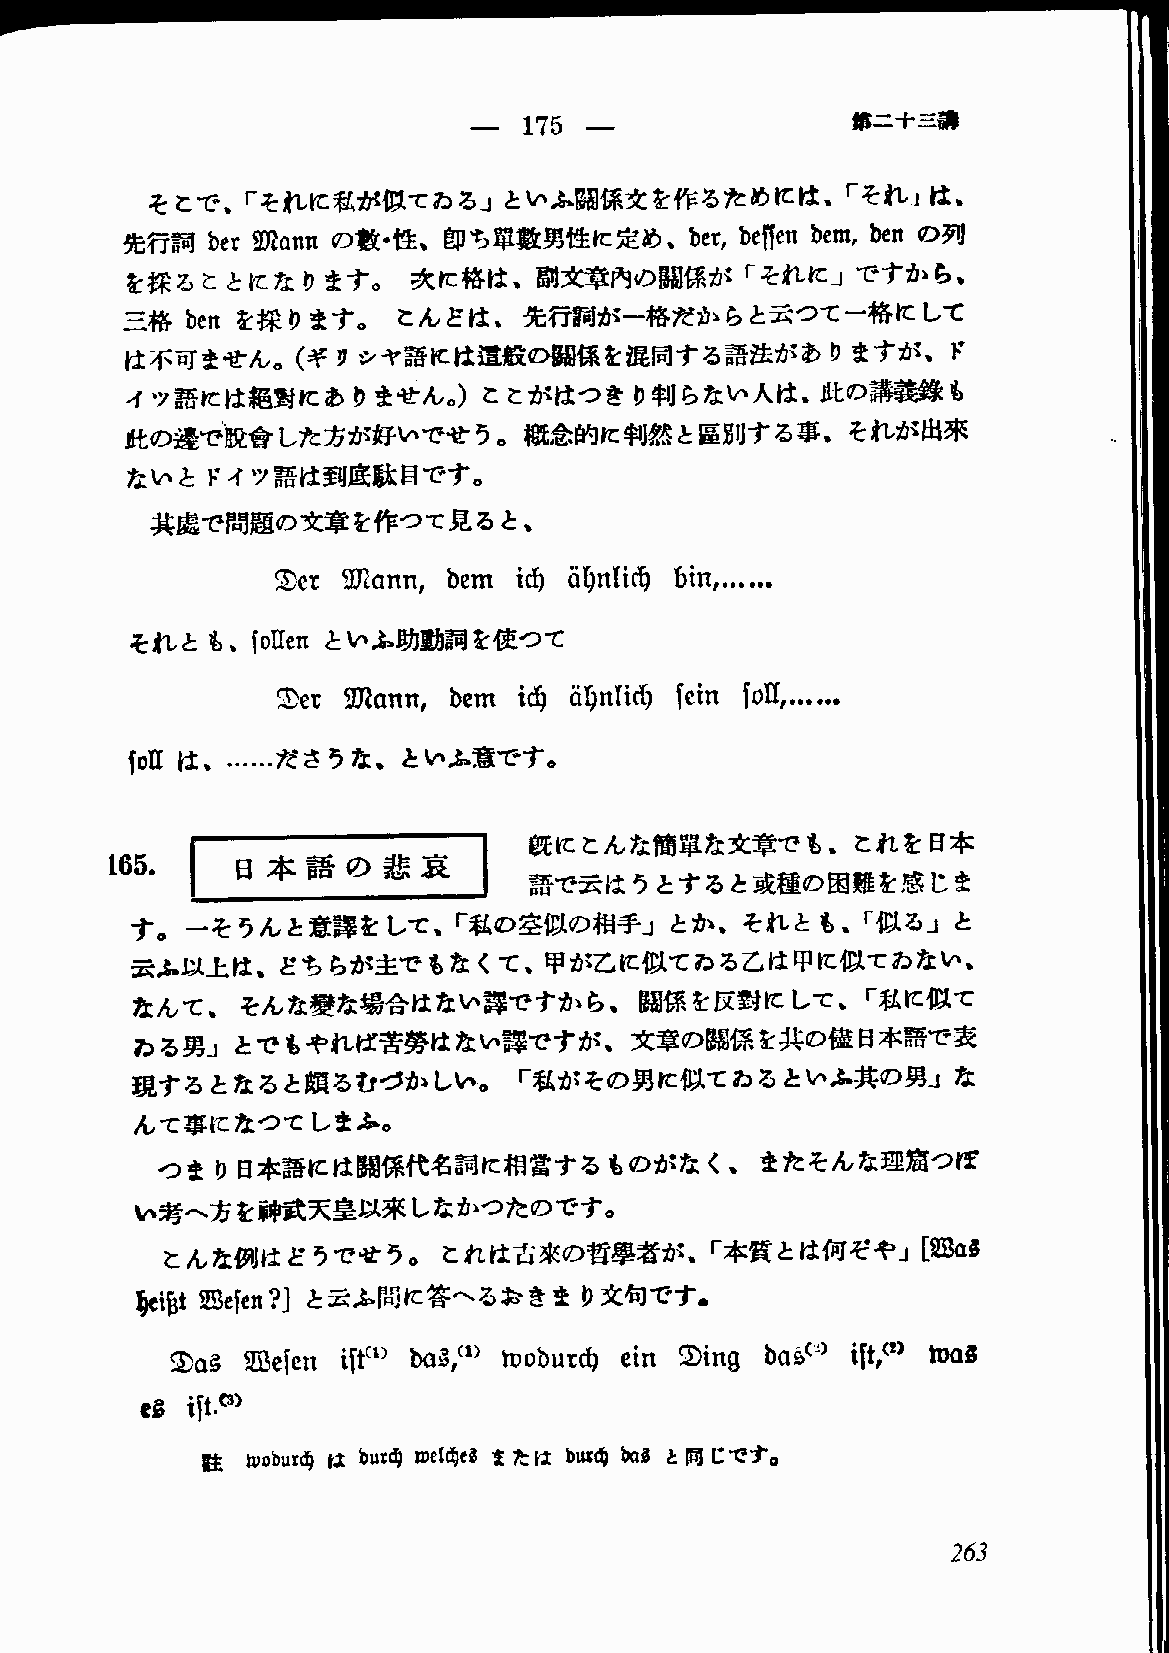 — 175 — 第二十三講
そこで、「それに私が似てゐる」といふ關係文を作るためには、「それ」は、
先行詞 der Mann の數・性、卽ち單數男性に定め、der, dessen dem, den の列
を採ることになります。 次に格は、副文章內の關係が「それに」ですから、
三格 den を採ります。 こんどは、先行詞が一格だからと云つて一格にして
は不可ません。(ギリシヤ語には這般の關係を混同する語法がありますが、ド
イツ語には絕對にありません。) ここがはつきり判らない人は、此の講義錄も
此の邊で脫會した方が好いでせう。槪念的に判然と區別する事、それが出來
ないとドイツ語は到底駄目です。
其處で問題の文章を作つて見ると、
Der Mann, dem ich ähnlich bin,......
それとも、sollen といふ助動詞を使つて
Der Mann, dem ich ähnlich sein soll,......
soll は、......ださうな、といふ意です。
165. 日本語の悲哀
旣にこんな簡單な文章でも、これを日本
語で云はうとすると或種の困難を感じま
す。一そうんと意譯をして、「私の空似の相手」とか、それとも、「似る」と
云ふ以上は、どちらが主でもなくて、甲が乙に似てゐる乙は甲に似てゐない、
なんて、そんな變な場合はない譯ですから、關係を反對にして、「私に似て
ゐる男」とでもやれば苦勞はない譯ですが、文章の關係を共の儘日本語で表
現するとなると頗るむづかしい。「私がその男に似てゐるといふ其の男」な
んて事になつてしまふ。
つまり日本語には關係代名詞に相當するものがなく、またそんな理窟つぽ
い考へ方を神武天皇以來しなかつたのです。
こんな例はどうでせう。これは古來の哲學者が、「本質とは何ぞや」[Was
heißt Wesen?] と云ふ問に答へるおきまり文句です。
Das Wesen ist⁽¹⁾ das,⁽¹⁾ wodurch ein Ding das⁽²⁾ ist,⁽²⁾ was
es ist.⁽³⁾
註 wodurch は durch welches または durch das と同じです。
263